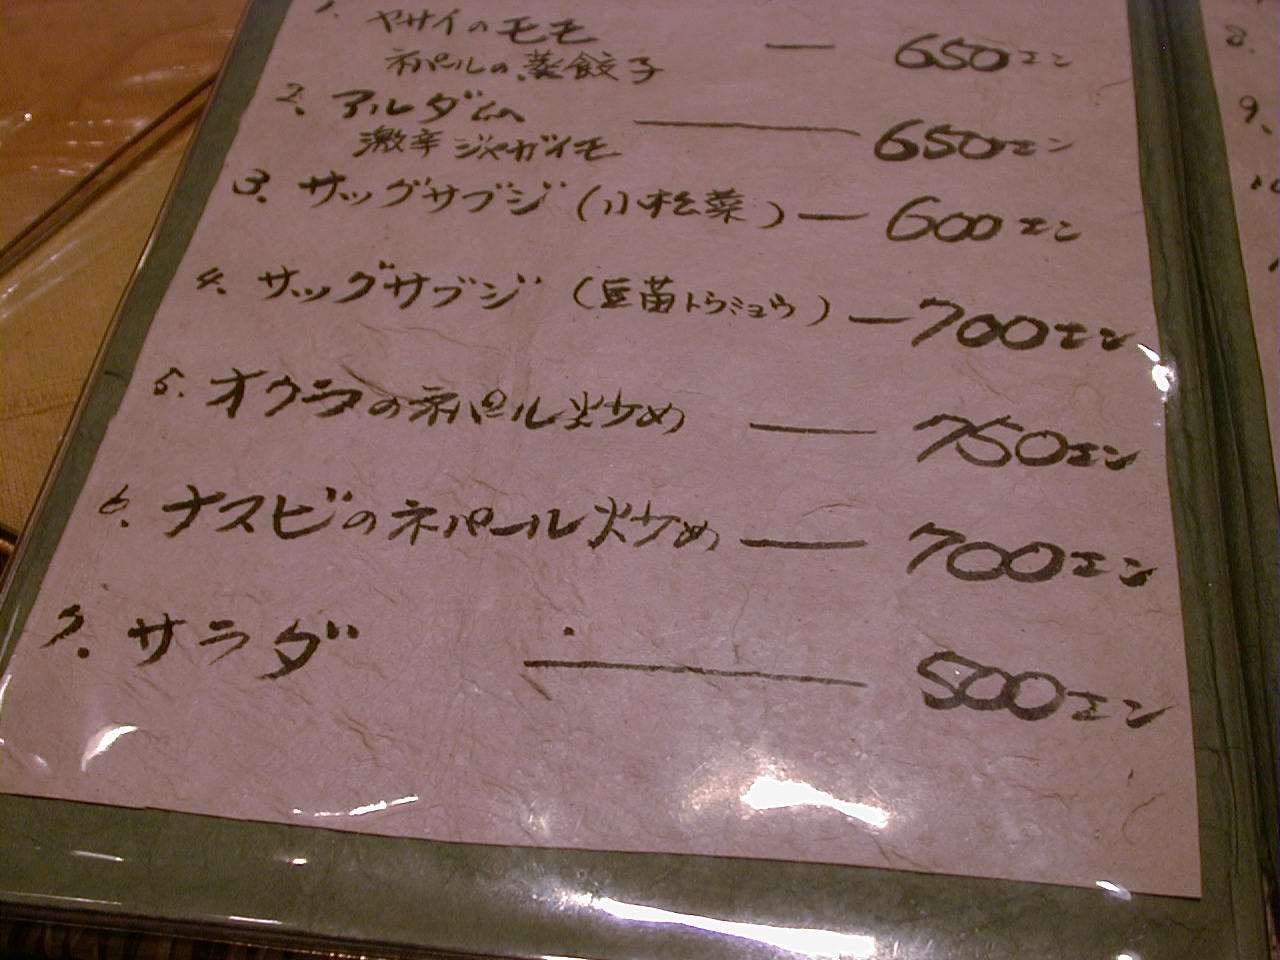 1. ヤサイのモモ — 650エン
ネパールの蒸餃子
2. アルダム — 650エン
激辛ジャガイモ
3. サッグサブジ (小松菜) — 600エン
4. サッグサブジ (豆苗トウミョウ) — 700エン
5. オクラのネパール炒め — 750エン
6. ナスビのネパール炒め — 700エン
7. サラダ — 500エン
8.
9.